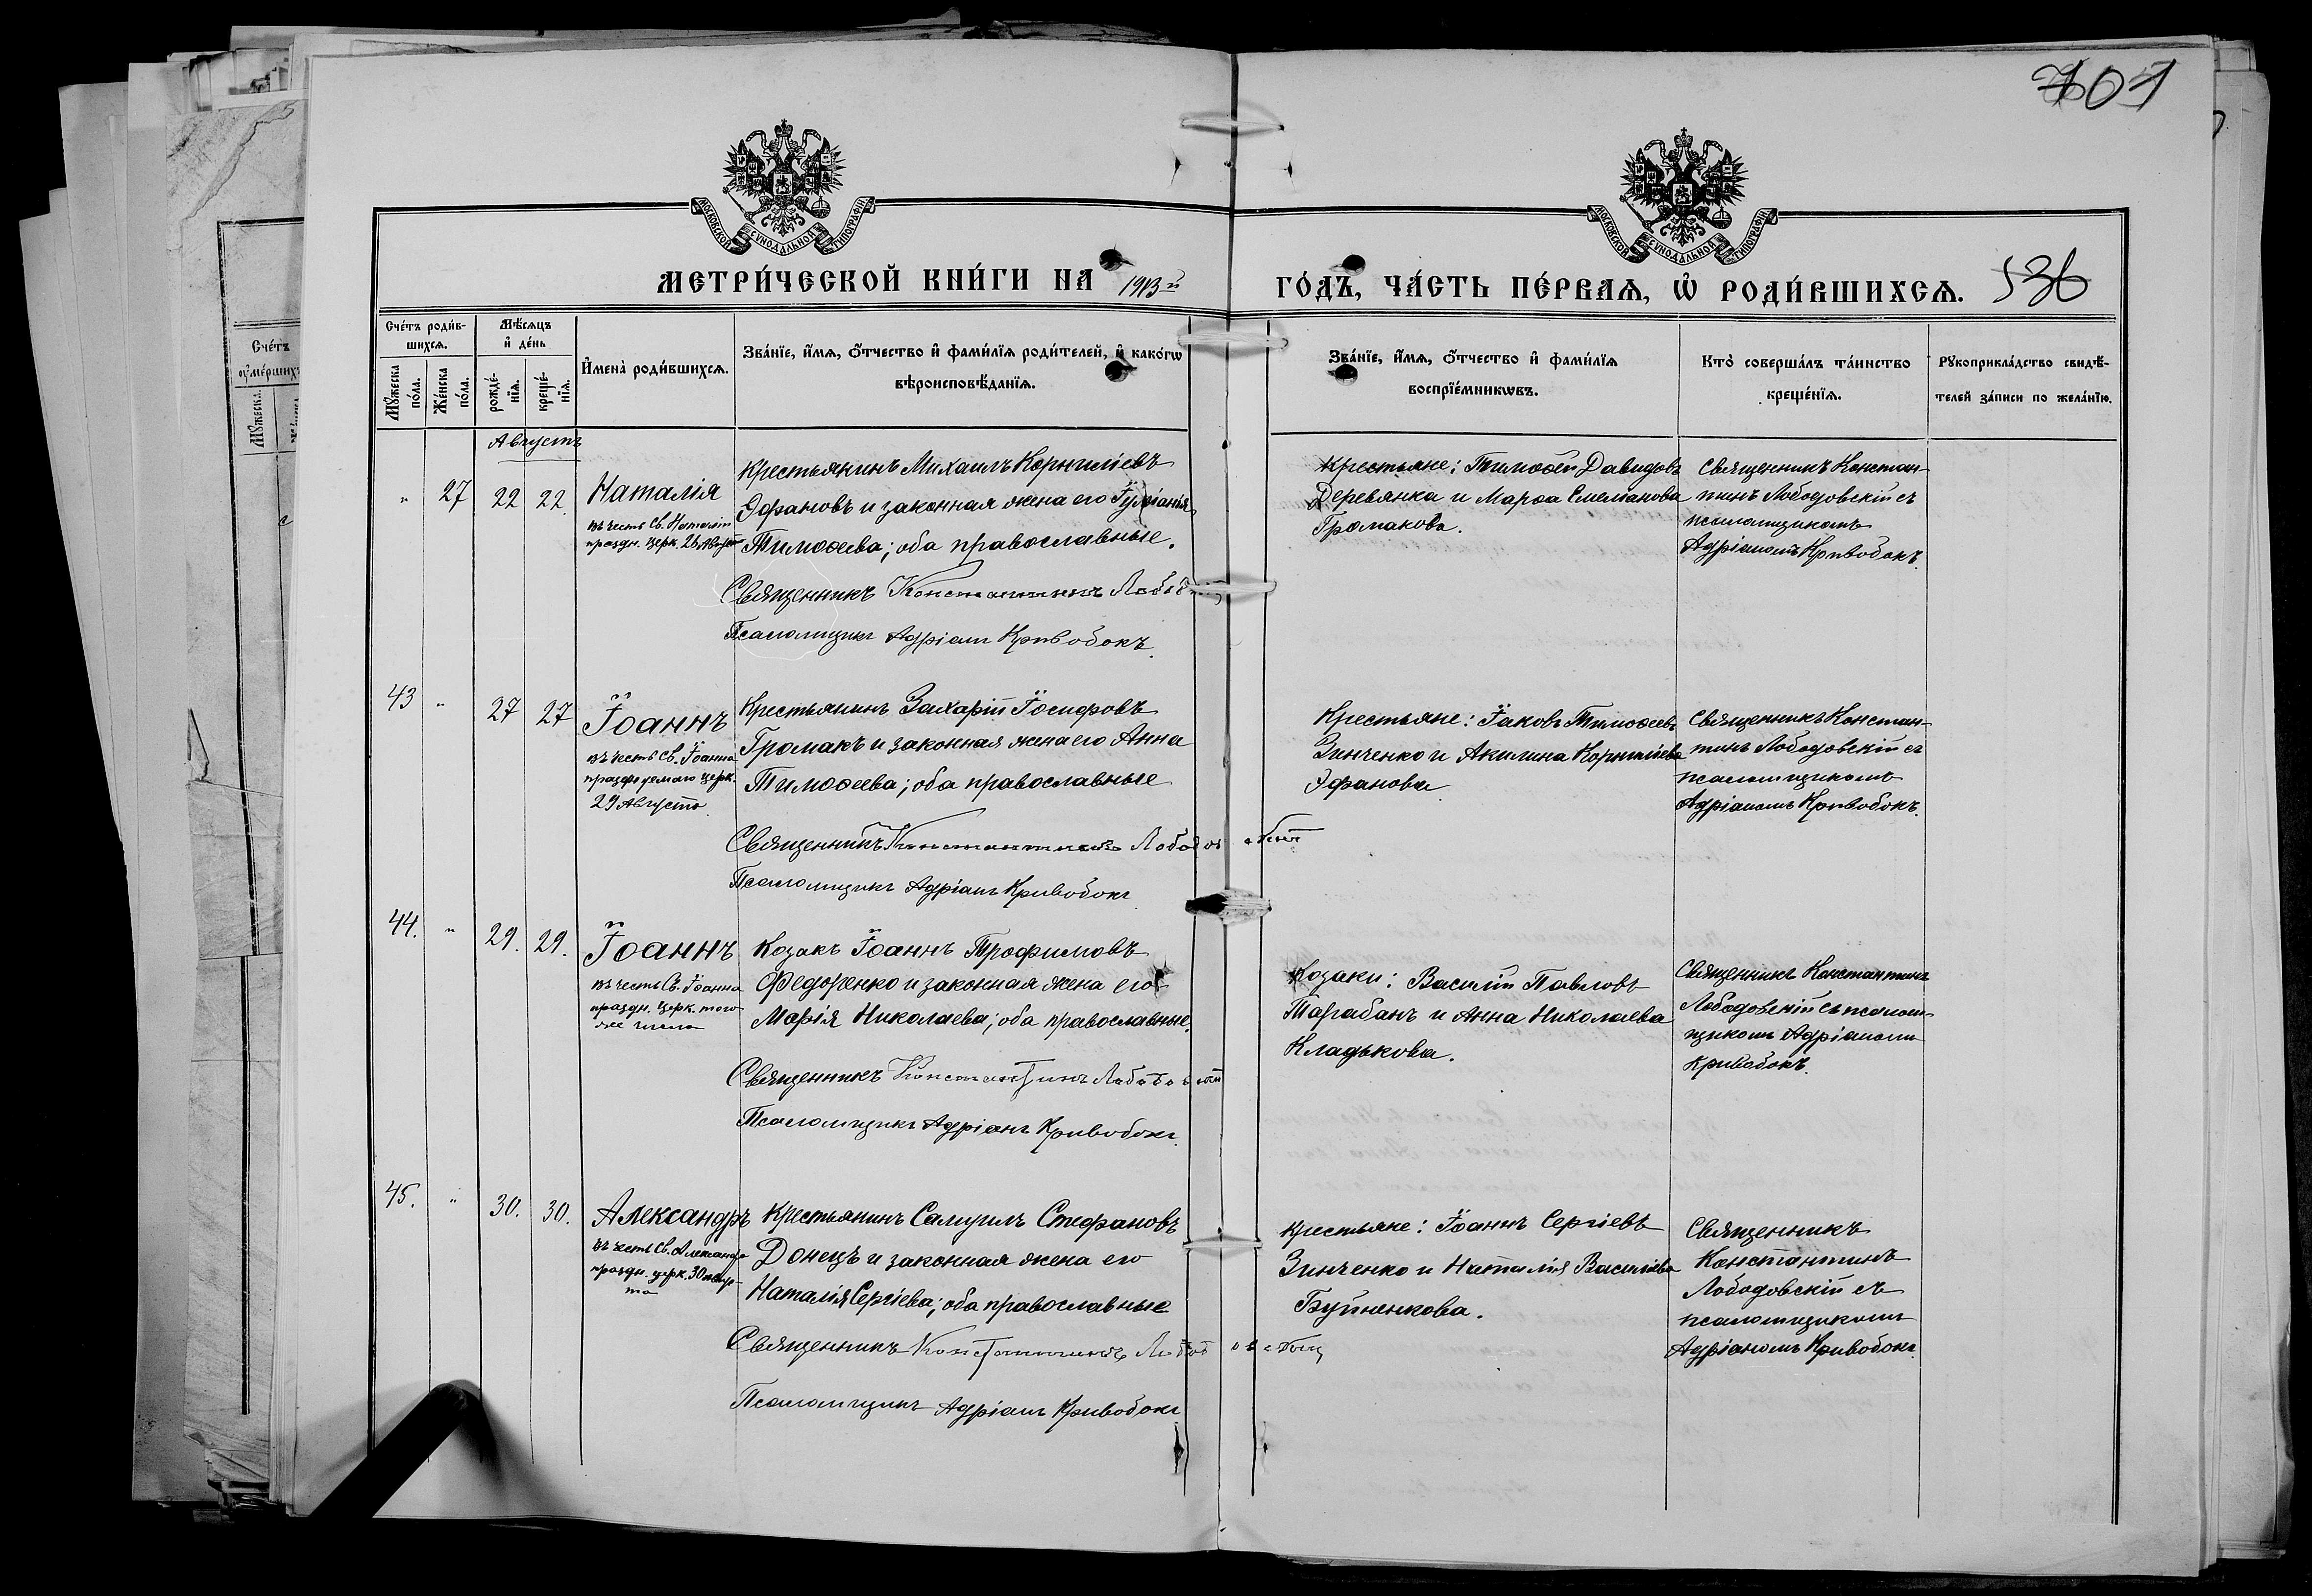 701
МОСКОВСКОЙ СѴНОДАЛЬНОЙ ТИПОГРАФІИ
МОСКОВСКОЙ СѴНОДАЛЬНОЙ ТИПОГРАФІИ
МЕТРИ́ЧЕСКОЙ КНИ́ГИ НА 1913й ГО́ДЪ, ЧА́СТЬ ПЕ́РВАѦ, Ѡ РОДИ́ВШИХСѦ. 536
Сче́тъ роди́в-
шихсѧ.
Мѣ́сѧцъ
и҆ де́нь
Мꙋ́жеска по́ла.
Же́нска по́ла.
рожде́-нїѧ.
креще́-нїѧ.
И҆мена̀ роди́вшихсѧ.
Зва́нїе, и҆́мѧ, ѻ҆́тчество и҆ фами́лїѧ роди́телей, и҆ како́гѡ
вѣроисповѣ́данїѧ.
Зва́нїе, и҆́мѧ, ѻ҆́тчество и҆ фами́лїѧ
воспрїе́мникѡвъ.
Кто̀ соверша́лъ та́инство
креще́нїѧ.
Рꙋкоприкла́дство свидѣ́-
телей за́писи по жела́нїю.
Счéтъ
оумéршихъ
Мꙋ́жеска
Августъ
" 27 22 22.
Наталія
въ честь Св. Наталіи
праздн. церк. 26 Августа
Крестьянинъ Михаилъ Корниліевъ
Эфановъ и законная жена его Іуліанія
Тимоѳеева; оба православные.
Священникъ Константинъ
Псаломщикъ Адріанъ Кривобокъ.
Крестьяне: Тимоѳей Давидовъ
Деревянка и Марѳа Емеліанова
Громакова.
Священникъ Констан-
тинъ Лободовскій съ
псаломщикомъ
Адріаномъ Кривобокъ.
43 " 27 27
Іоаннъ
въ честь Св. Іоанна
празднуемаго церк.
29 Августа
Крестьянинъ Захарій Іосифовъ
Громакъ и законная жена его Анна
Тимоѳеева; оба православные
Священникъ Константинъ Лободовскій
Псаломщикъ Адріанъ Кривобокъ
Крестьяне: Іаковъ Тимоѳеевъ
Зинченко и Акилина Корниліева
Эфанова
Священникъ Констан-
тинъ Лободовскій съ
псаломщикомъ
Адріаномъ Кривобокъ.
44. " 29. 29.
Іоаннъ
въ честь Св. Іоанна
праздн. церк. того
же числа
Козакъ Іоаннъ Трофимовъ
Федоренко и законная жена его
Марія Николаева; оба православные.
Священникъ Константинъ Лободовскій
Псаломщикъ Адріанъ Кривобокъ.
Козаки: Василій Павловъ
Тарабанъ и Анна Николаева
Кладькова.
Священникъ Константинъ
Лободовскій съ псалом-
щикомъ Адріаномъ
Кривобокъ.
45. " 30. 30.
Александръ
въ честь Св. Александра
праздн. церк. 30 Авгус-
та
Крестьянинъ Самуилъ Стефановъ
Донецъ и законная жена его
Наталія Сергіева; оба православные
Священникъ Константинъ Лободовскій
Псаломщикъ Адріанъ Кривобокъ
Крестьяне: Іоаннъ Сергіевъ
Зинченко и Наталія Василіева
Буйненкова.
Священникъ
Константинъ
Лободовскій съ
псаломщикомъ
Адріаномъ Кривобокъ.